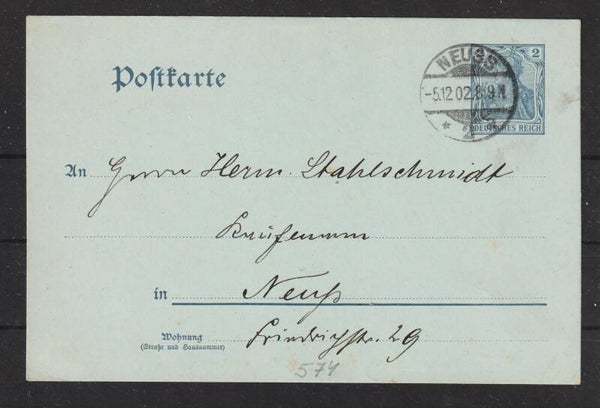 Postkarte
2
NEUSS
-5.12.02.8-9.N
* 2
DEUTSCHES REICH
An Herrn Herm. Stahlschmidt
in Neuß
Wohnung
(Straße und Hausnummer)
Friedrichstr. 29
574